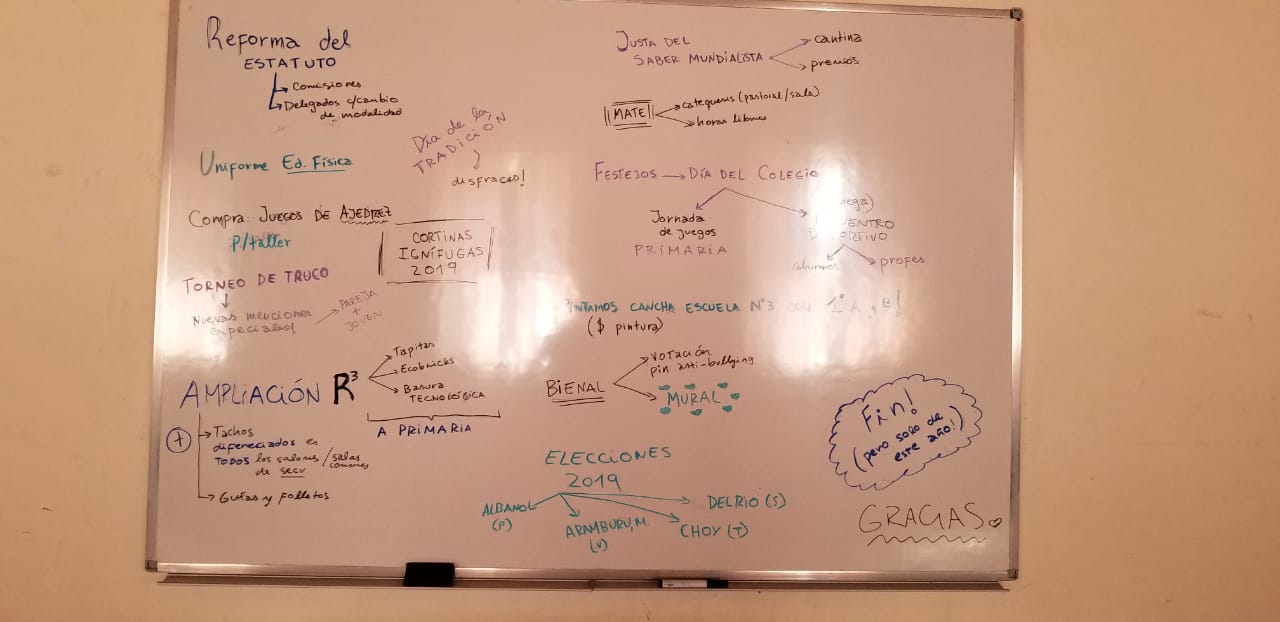 Reforma del
ESTATUTO
Comisiones
Delegados c/cambio
de modalidad
Día de la
TRADICIÓN
disfraces!
Uniforme Ed. Física
Compra: JUEGOS DE AJEDREZ
P/taller
CORTINAS
IGNÍFUGAS
2019
TORNEO DE TRUCO
Nuevas menciones
especiales!
PAREJA
+
JOVEN
AMPLIACIÓN R³
Tapitas
Ecobricks
Basura
TECNOLÓGICA
A PRIMARIA
+
Tachos
difereciados en
TODOS los salones / salas
comunes
de secu
Guías y folletos
JUSTA DEL
SABER MUNDIALISTA
cantina
premios
MATE
catequesis (pastoral/sala)
horas libres
FESTEJOS → DÍA DEL COLEGIO
Jornada
de juegos
PRIMARIA
alumnos
profes
PINTAMOS CANCHA ESCUELA N°3 CON 1°
($ pintura)
BIENAL
VOTACIÓN
pin anti-bullying
MURAL
ELECCIONES
2019
ALBANOL
(P)
ARAMBURU, M.
(V)
CHOY (T)
DELRIO (S)
Fin!
(pero solo de
este año!)
GRACIAS